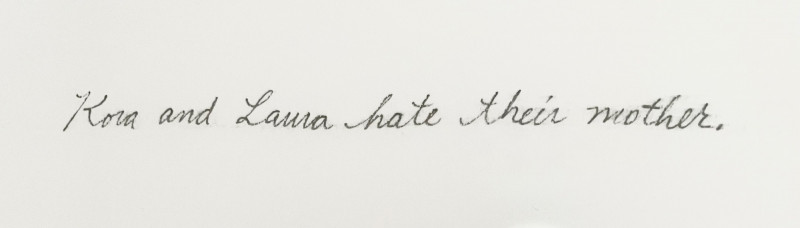 Kora and Laura hate their mother.